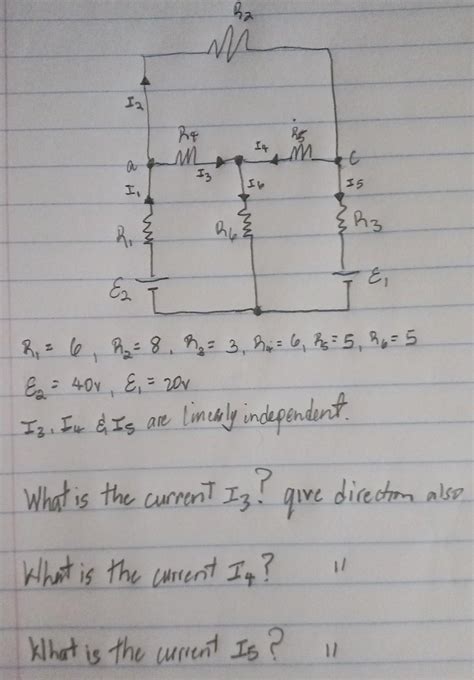 R2
I2
R4
R5
I4
a
I3
C
I1
I6
I5
R1
R6
R3
ε2
ε1
R1 = 6, R2 = 8, R3 = 3, R4 = 6, R5 = 5, R6 = 5
ε2 = 40v, ε1 = 20v
I3, I4 & I5 are linearly independent.
What is the current I3? give direction also
What is the current I4? "
What is the current I5? "